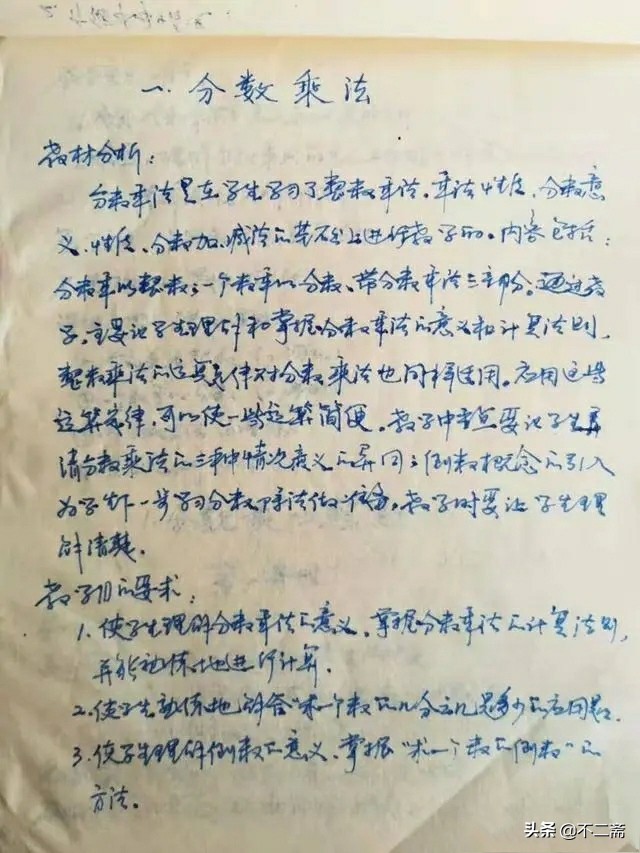 一、分数乘法
教材分析：
分数乘法是在学生学习了整数乘法、乘法性质、分数意
义、性质、分数加、减法的基础上进行教学的。内容包括：
分数乘以整数；一个数乘以分数、带分数乘法三部份。通过教
学，主要让学生理解和掌握分数乘法的意义和计算法则，
整数乘法的运算定律对分数乘法也同样适用。应用这些
运算定律，可以使一些运算简便。教学中重点要让学生弄
清分数乘法的三种情况意义的异同；倒数概念的引入
为学生下一步学习分数除法做准备，教学时要让学生理
解清楚。
教学目的要求：
1. 使学生理解分数乘法的意义，掌握分数乘法的计算法则，
并能熟练地进行计算．
2. 使学生熟练地解答“求一个数的几分之几是多少的应用题．
3. 使学生理解倒数的意义、掌握“求一个数的倒数”的
方法。
头条 @不二斋